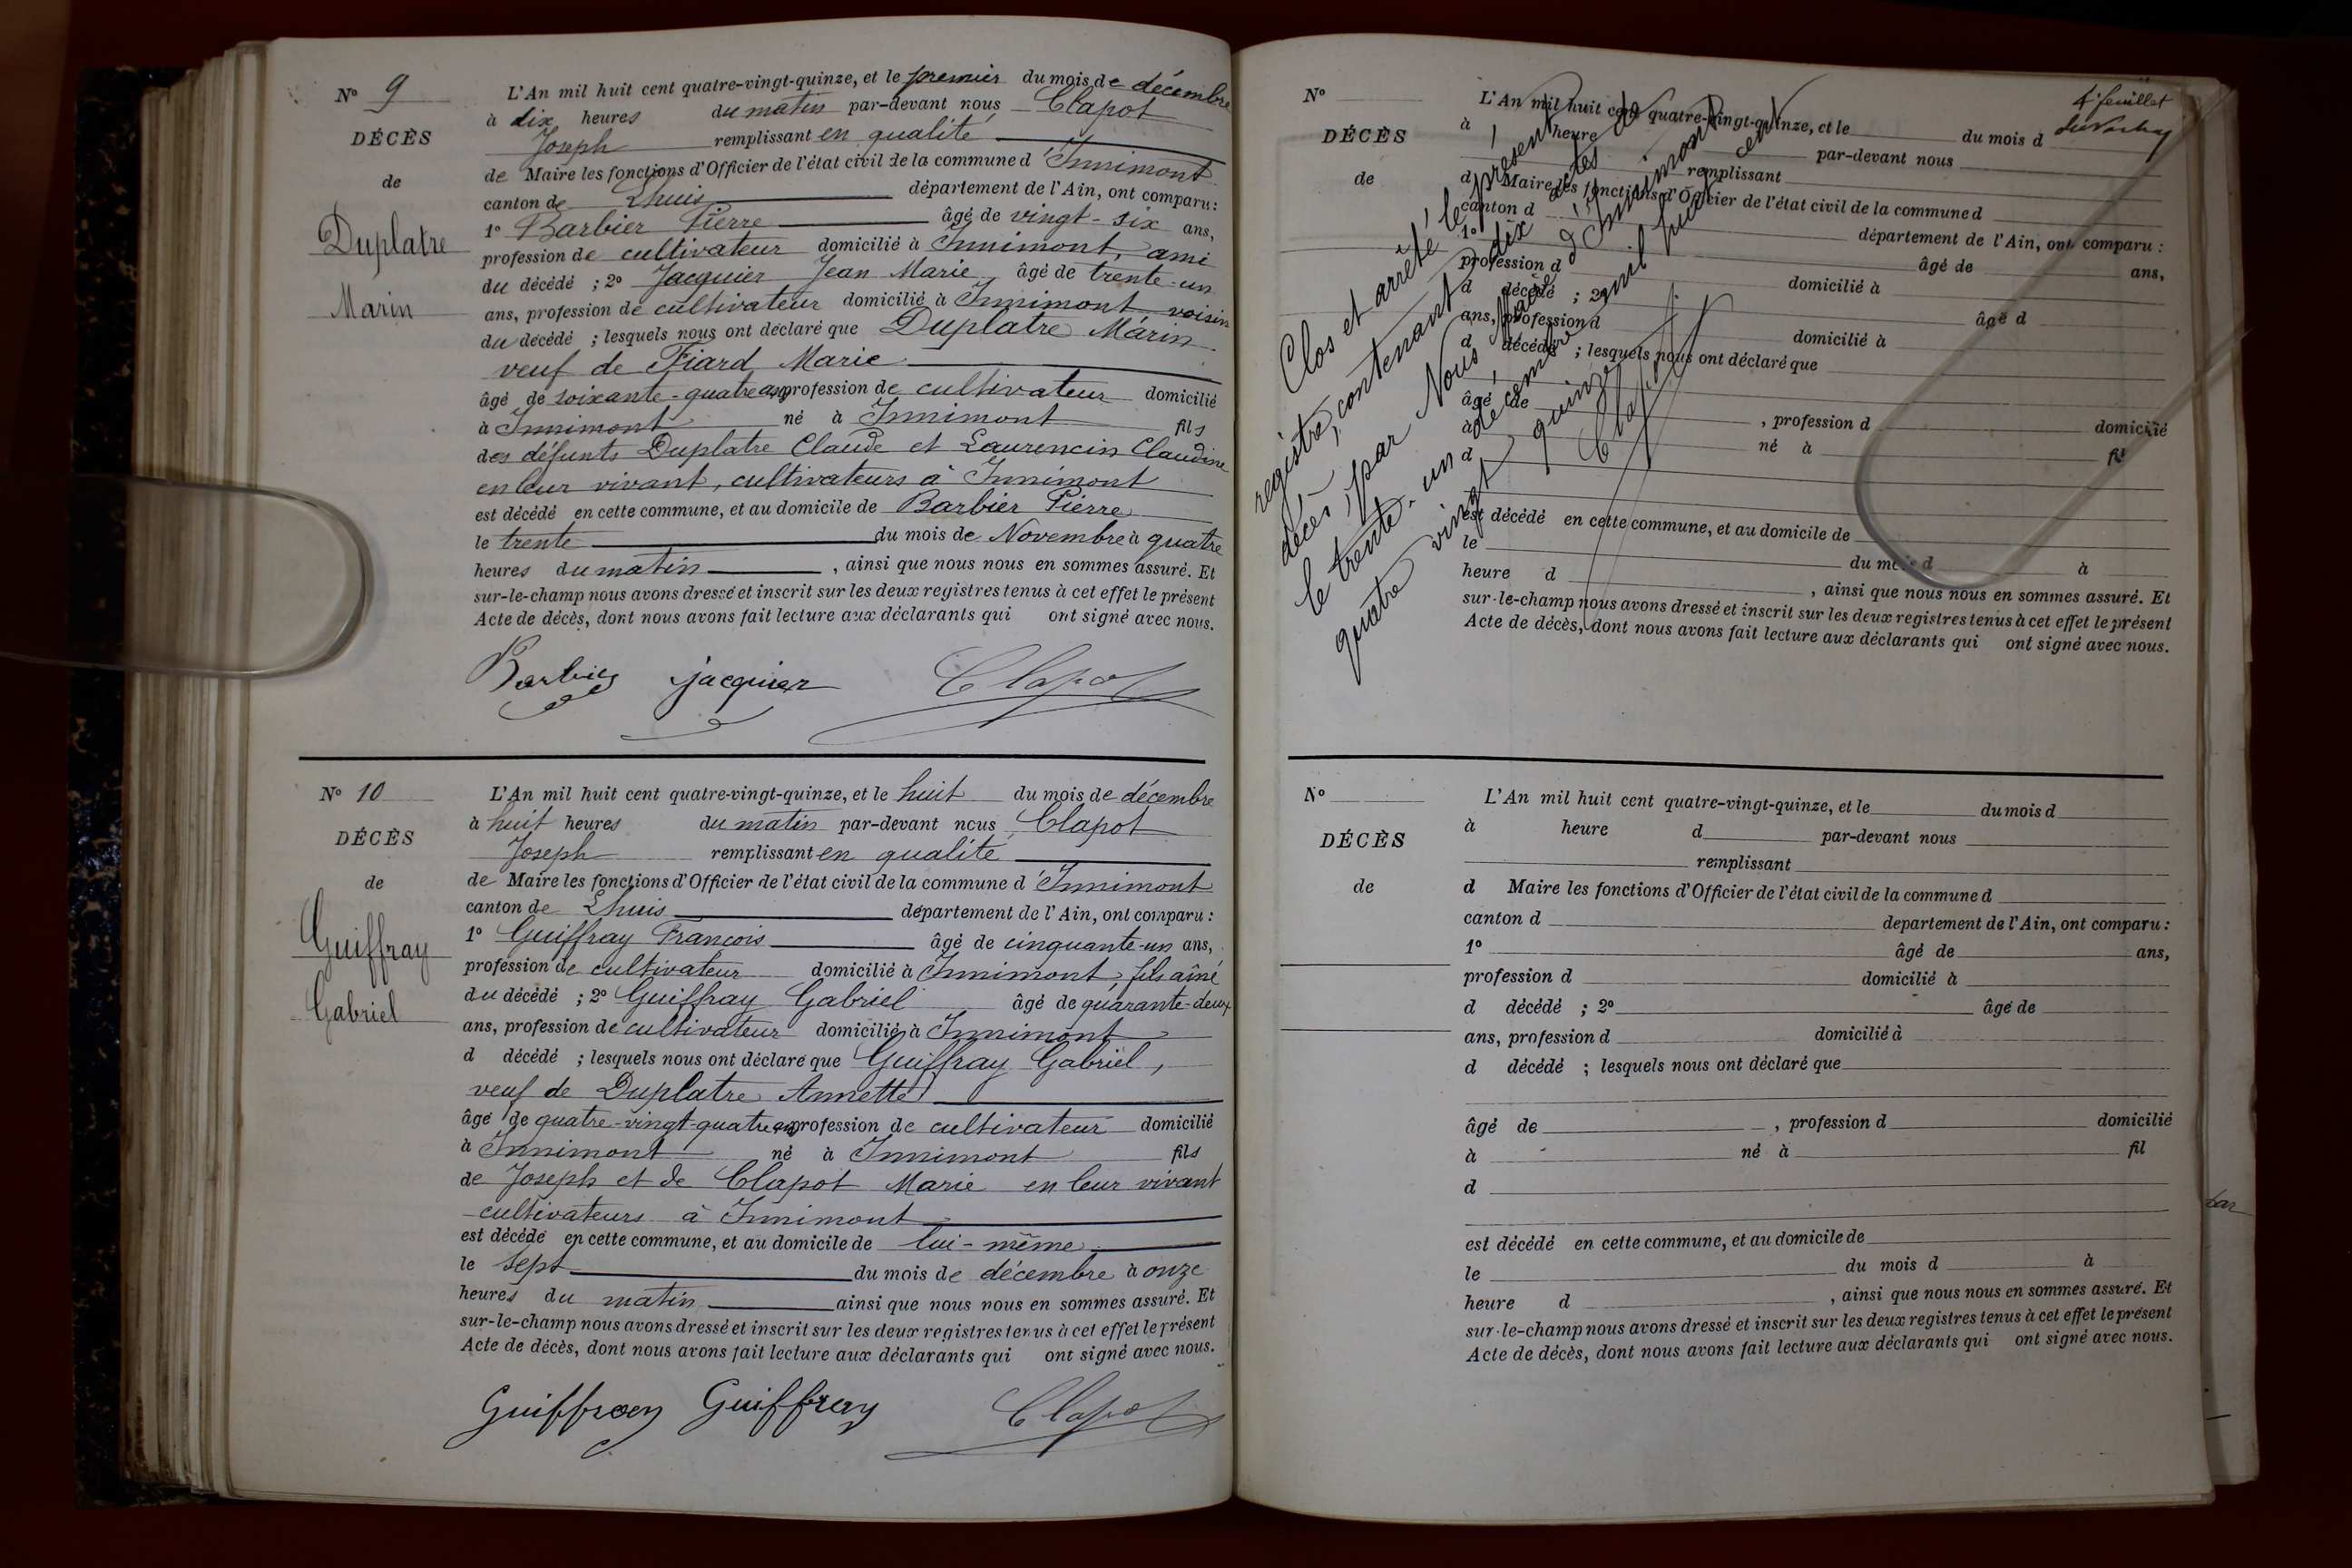 N° 9
DÉCÈS
de
Duplatre
Marin
L'An mil huit cent quatre-vingt-quinze, et le premier du mois de décembre
à dix heures du matin par-devant nous Clapot
Joseph remplissant en qualité
de Maire les fonctions d'Officier de l'état civil de la commune d'Innimont
canton de Lhuis département de l'Ain, ont comparu :
1° Barbier Pierre âgé de vingt-six ans,
profession de cultivateur domicilié à Innimont, ami
du décédé ; 2° Jacquier Jean Marie, âgé de trente-un
ans, profession de cultivateur domicilié à Innimont voisin
du décédé ; lesquels nous ont déclaré que Duplatre Marin
veuf de Fiard Marie
âgé de soixante-quatre ans, profession de cultivateur domicilié
à Innimont né à Innimont fils
des défunts Duplatre Claude et Laurencin Claudine
en leur vivant, cultivateurs à Innimont
est décédé en cette commune, et au domicile de Barbier Pierre
le trente du mois de Novembre à quatre
heures du matin, ainsi que nous nous en sommes assuré. Et
sur-le-champ nous avons dressé et inscrit sur les deux registres tenus à cet effet le présent
Acte de décès, dont nous avons fait lecture aux déclarants qui ont signé avec nous.
Barbier Jacquier Clapot
N° 10
DÉCÈS
de
Guiffray
Gabriel
L'An mil huit cent quatre-vingt-quinze, et le huit du mois de décembre
à huit heures du matin par-devant nous Clapot
Joseph remplissant en qualité
de Maire les fonctions d'Officier de l'état civil de la commune d'Innimont
canton de Lhuis département de l'Ain, ont comparu :
1° Guiffray François âgé de cinquante-un ans,
profession de cultivateur domicilié à Innimont, fils aîné
du décédé ; 2° Guiffray Gabriel âgé de quarante-deux
ans, profession de cultivateur domicilié à Innimont
d décédé ; lesquels nous ont déclaré que Guiffray Gabriel,
veuf de Duplatre Annette
âgé de quatre-vingt-quatre ans, profession de cultivateur domicilié
à Innimont né à Innimont fils
de Joseph et de Clapot Marie en leur vivant
cultivateurs à Innimont
est décédé en cette commune, et au domicile de lui-même
le sept du mois de décembre à onze
heures du matin ainsi que nous nous en sommes assuré. Et
sur-le-champ nous avons dressé et inscrit sur les deux registres tenus à cet effet le présent
Acte de décès, dont nous avons fait lecture aux déclarants qui ont signé avec nous.
Guiffray Guiffray Clapot
4e feuillet
N°
DÉCÈS
de
L'An mil huit cent quatre-vingt-quinze, et le du mois d
à heure par-devant nous
remplissant
d Maire les fonctions d'Officier de l'état civil de la commune d
canton d département de l'Ain, ont comparu :
1° âgé de ans,
profession d domicilié à
d décédé ; 2° âgé d
ans, profession d domicilié à
d décédé ; lesquels nous ont déclaré que
âgé de , profession d domicilié
à né à fil
d
est décédé en cette commune, et au domicile de
le du mois d à
heure d , ainsi que nous nous en sommes assuré. Et
sur-le-champ nous avons dressé et inscrit sur les deux registres tenus à cet effet le présent
Acte de décès, dont nous avons fait lecture aux déclarants qui ont signé avec nous.
Clos et arrêté le présent
registre, contenant dix actes de
décès, par Nous Maire d'Innimont
le trente-un décembre mil huit cent
quatre vingt quinze
Clapot
N°
DÉCÈS
de
L'An mil huit cent quatre-vingt-quinze, et le du mois d
à heure d par-devant nous
remplissant
d Maire les fonctions d'Officier de l'état civil de la commune d
canton d departement de l'Ain, ont comparu :
1° âgé de ans,
profession d domicilié à
d décédé ; 2° âgé de
ans, profession d domicilié à
d décédé ; lesquels nous ont déclaré que
âgé de , profession d domicilié
à né à fil
d
est décédé en cette commune, et au domicile de
le du mois d à
heure d , ainsi que nous nous en sommes assuré. Et
sur-le-champ nous avons dressé et inscrit sur les deux registres tenus à cet effet le présent
Acte de décès, dont nous avons fait lecture aux déclarants qui ont signé avec nous.